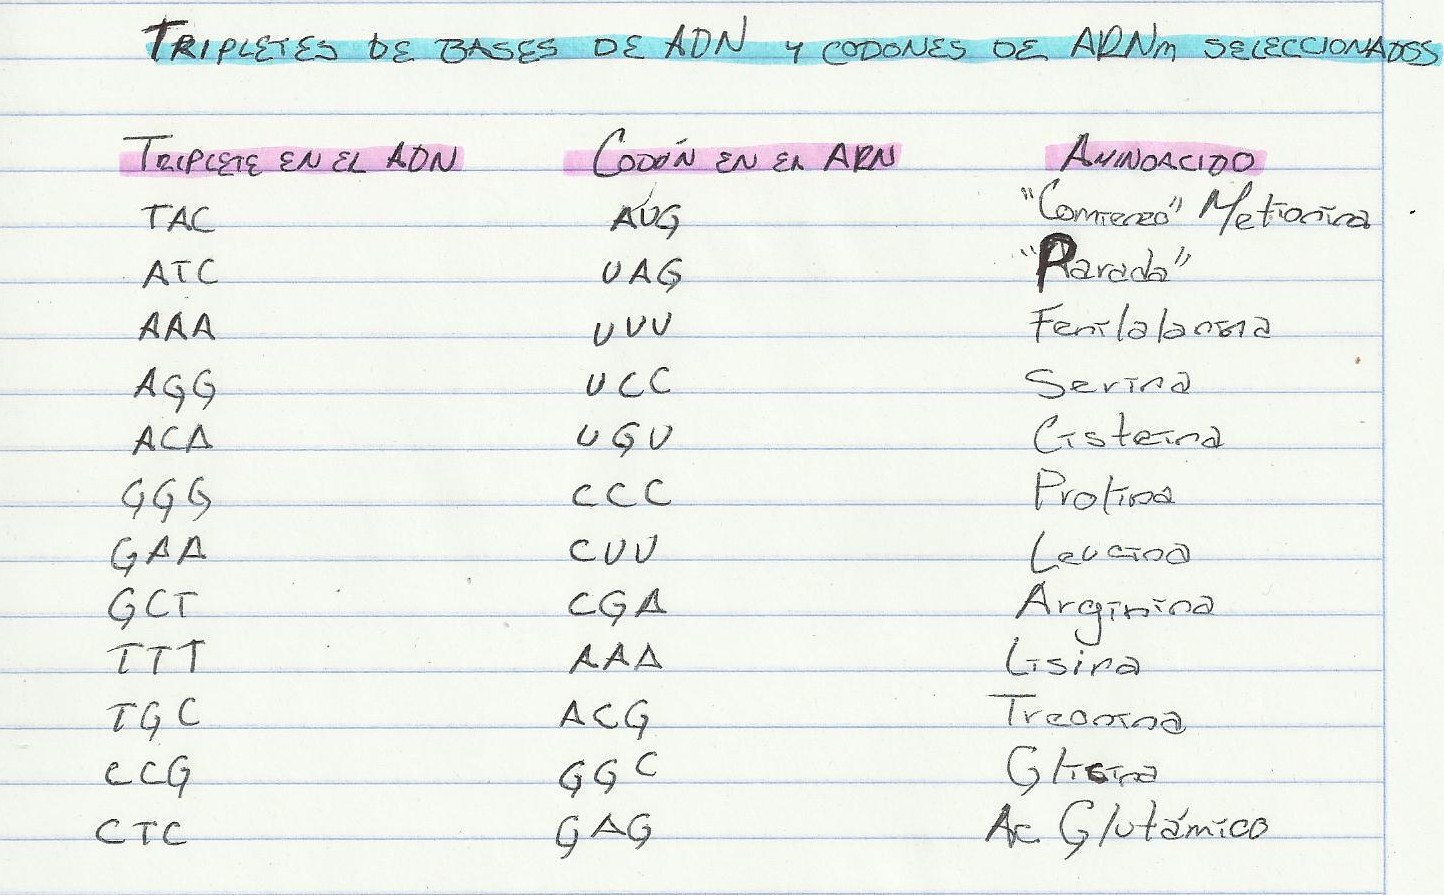 TRIPLETES DE BASES DE ADN Y CODONES DE ARNm SELECCIONADOS
TRIPLETE EN EL ADN CODÓN EN EL ARN AMINOACIDO
TAC AUG "Comienzo" Metionina
ATC UAG "Parada"
AAA UUU Fenilalanina
AGG UCC Serina
ACA UGU Cisteina
GGG CCC Prolina
GAA CUU Leucina
GCT CGA Arginina
TTT AAA Lisina
TGC ACG Treonina
CCG GGC Glicina
CTC GAG Ac. Glutámico